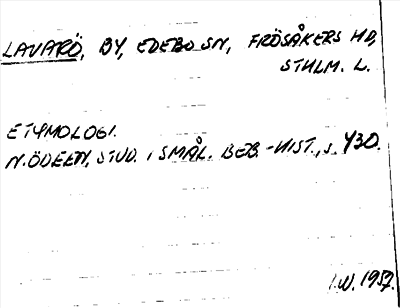 LAVARÖ, BY, EDEBO SN, FRÖSÅKERS HD,
STHLM. L.
ETYMOLOGI.
N. ÖDEEN, STUD. I SMÅL. BEB.-HIST., S. 430.
I.W. 1957.